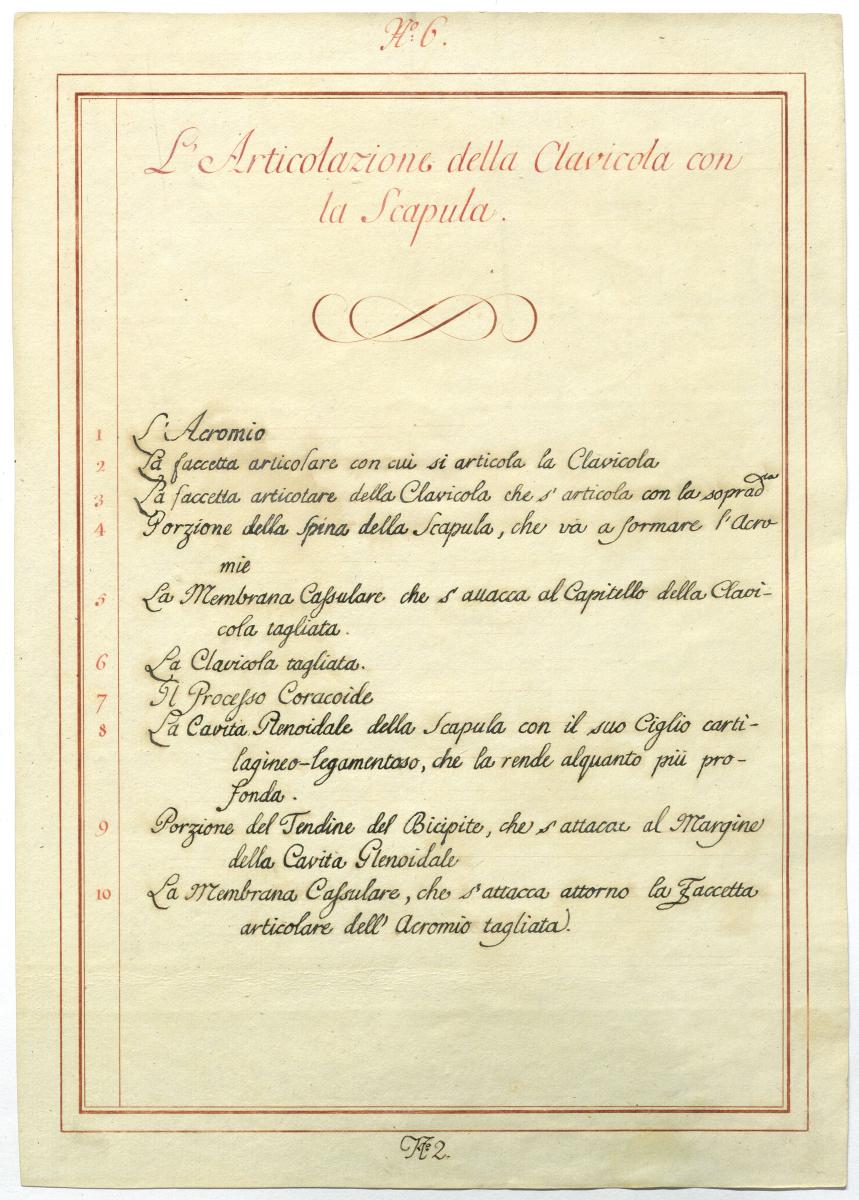 Nº 6.
L'Articolazione della Clavicola con
la Scapula.
1 L'Acromio
2 La faccetta articolare con cui si articola la Clavicola
3 La faccetta articolare della Clavicola che s'articola con la sopradta
4 Porzione della Spina della Scapula, che và a formare l'Acro-
mie
5 La Membrana Cassulare che s'attacca al Capitello della Clavi-
cola tagliata.
6 La Clavicola tagliata.
7 Il Processo Coracoide
8 La Cavità Glenoidale della Scapula con il suo Ciglio carti-
lagineo-legamentoso, che la rende alquanto più pro-
fonda.
9 Porzione del Tendine del Bicipite, che s'attacac al Margine
della Cavità Glenoidale
10 La Membrana Cassulare, che s'attacca attorno la Faccetta
articolare dell'Acromio tagliata).
Nº 2.